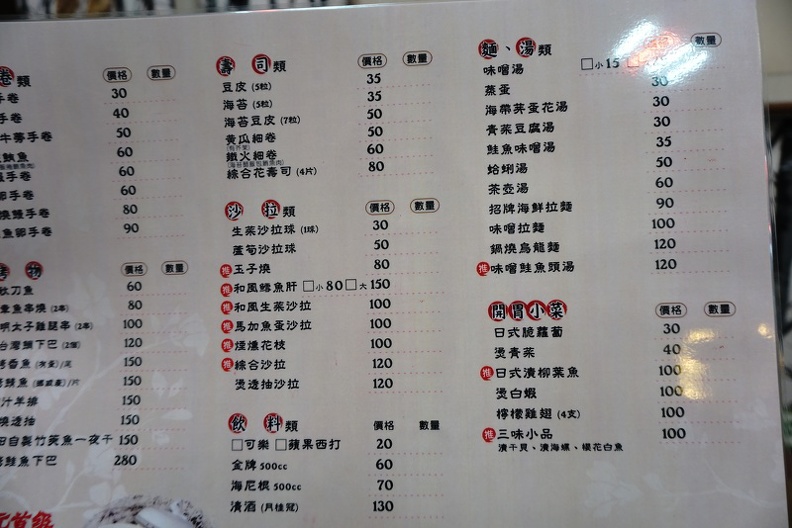 卷類 價格 數量
手卷 30
手卷 40
牛蒡手卷 50
鮪魚 60
手卷 60
卵手卷 60
燒鰻手卷 80
魚卵手卷 90
烤物 價格 數量
秋刀魚 60
章魚串燒 (2串) 80
明太子雞腿串 (2串) 100
台灣鯛下巴 (2個) 120
烤香魚 (有蛋)/尾 150
烤鯖魚 (挪威產)/片 150
汁羊排 150
燒透抽 150
田自製竹筴魚一夜干 150
烤鮭魚下巴 280
壽司類 價格 數量
豆皮 (5粒) 35
海苔 (5粒) 35
海苔豆皮 (7粒) 50
黃瓜細卷 50
鐵火細卷 60
綜合花壽司 (4片) 80
沙拉類 價格 數量
生菜沙拉球 (1球) 30
蘆筍沙拉球 50
推 玉子燒 80
推 和風鱈魚肝 □小80□大150
推 和風生菜沙拉 100
推 馬加魚蛋沙拉 100
推 煙燻花枝 100
推 綜合沙拉 120
燙透抽沙拉 120
飲料類 價格 數量
□可樂 □蘋果西打 20
金牌 500cc 60
海尼根 500cc 70
清酒 (月桂冠) 130
麵、湯類 數量
味噌湯 □小15
蒸蛋 30
海帶芽蛋花湯 30
青菜豆腐湯 30
鮭魚味噌湯 35
蛤蜊湯 50
茶壺湯 60
招牌海鮮拉麵 90
味噌拉麵 100
鍋燒烏龍麵 120
推 味噌鮭魚頭湯 120
開胃小菜 價格 數量
日式脆蘿蔔 30
燙青菜 40
推 日式漬柳葉魚 100
燙白蝦 100
檸檬雞翅 (4支) 100
推 三味小品 100
漬干貝、漬海螺、櫻花白魚